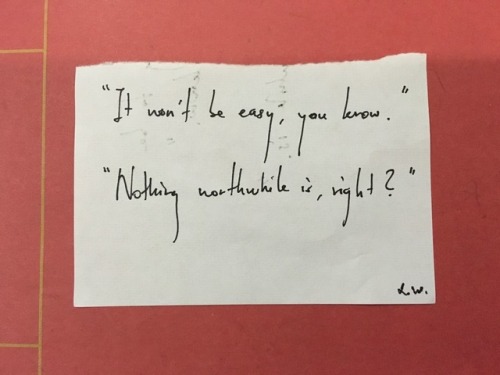 "It won't be easy, you know."
"Nothing worthwhile is, right?"
L.W.